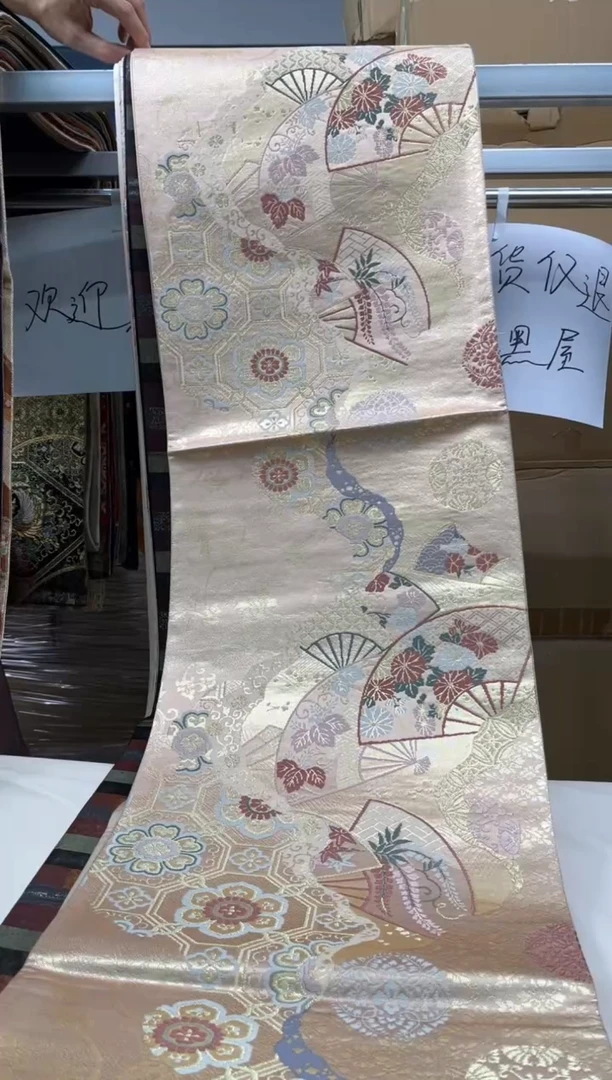 欢迎
货仅退
黑屋